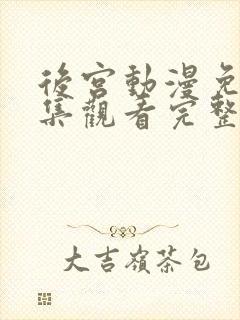 後宮動漫免
集觀看完整
大吉嶺茶包